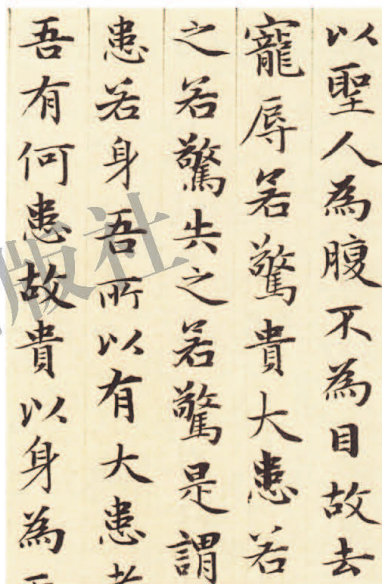 以聖人為腹不為目故去
寵辱若驚貴大患若
之若驚失之若驚是謂
患若身吾所以有大患者
吾有何患故貴以身為
版社